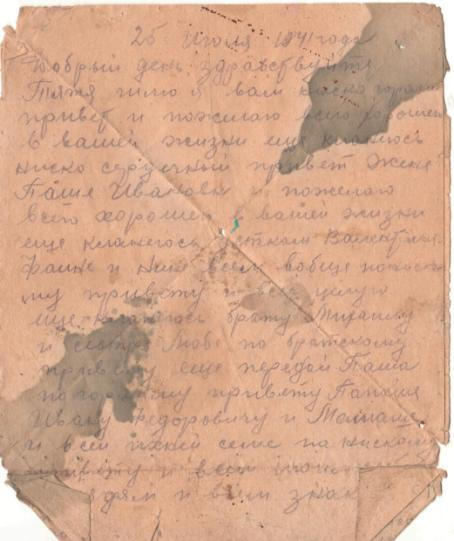 25 июля 1941 года
Добрый день здравствуйте
Тятя шлю я вам ниско
привет и пожелаю всего хорошего
в вашей жизни еще кланеюсь
ниско сердечный привет жене
Паше Ивановн и пожелаю
всего хорошего в вашей жизни
еще кланеюсь деткам Валентине
Фаине и Нине всем вобще по
му привету и всех целую
еще кланеюсь брату Михаилу
и сестре Любе по братскому
привету еще передай Паша
по горячому привету Папаше
Ивану Федоровичу и Мамаше
и всей ихней семе па нискому
привету и всем
и всем знак